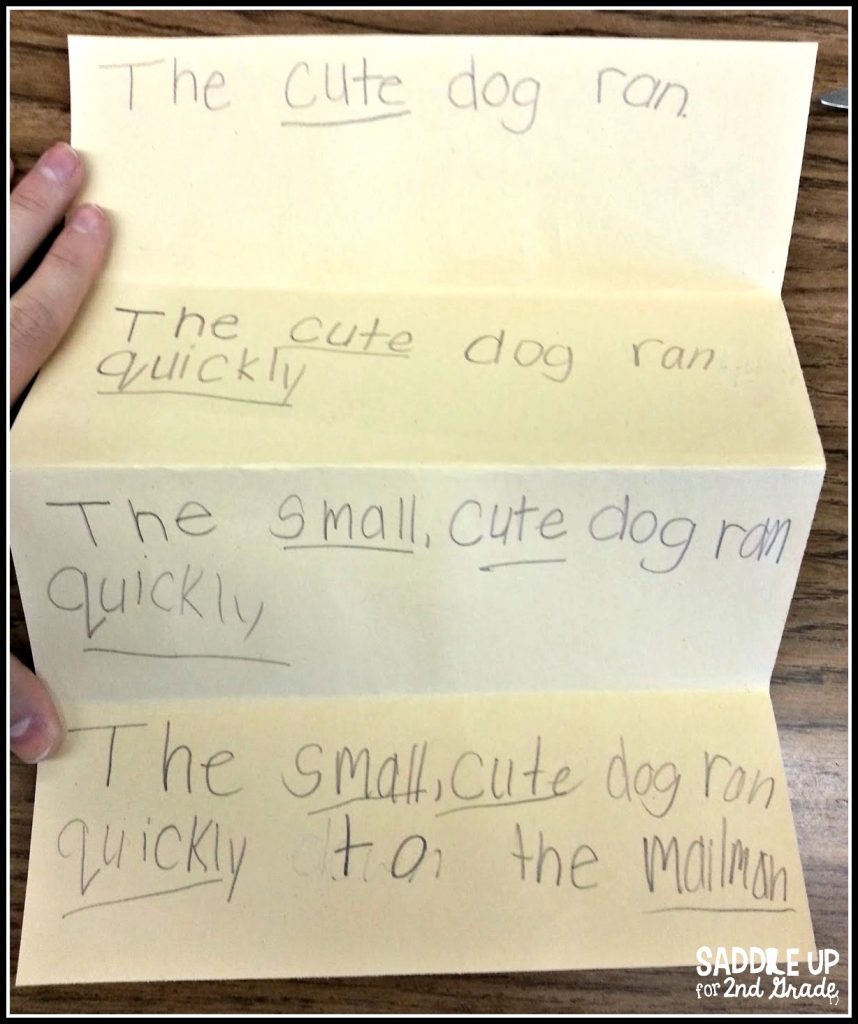 The cute dog ran.
The cute dog ran
quickly
The small, cute dog ran
quickly
The small, cute dog ran
quickly to the mailman
SADDLE UP
for 2nd Grade